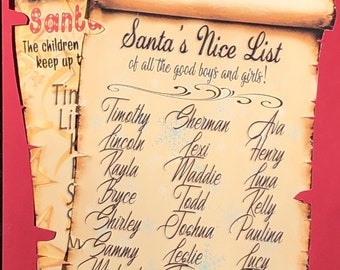 Santa
The children
keep up t
Tim
Li
Santa's Nice List
of all the good boys and girls!
Timothy Sherman Ava
Lincoln Lexi Henry
Kayla Maddie Luna
Bryce Todd Kelly
Shirley Joshua Paulina
Sammy Leslie Lucy